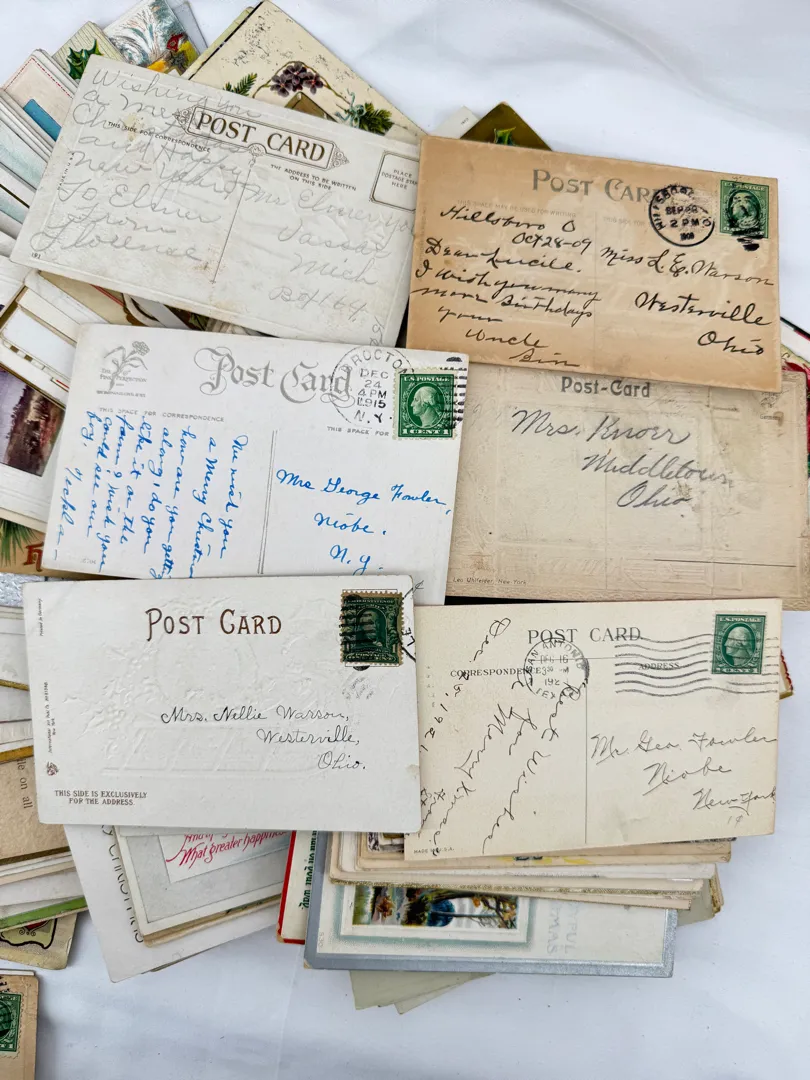 Wishing you
a Merry
Christmas
and Happy
New Year
To Elmer
From
Florence
POST CARD
THIS SIDE FOR CORRESPONDENCE
THE ADDRESS TO BE WRITTEN
ON THIS SIDE
PLACE
POSTAGE STAMP
HERE
Vassar
Mich
Box 164
POST CARD
Hillsboro O
Oct 28-09
Dear Lucile.
I wish you many
more Birthdays
your
Uncle
2 PM
1909
U.S. POSTAGE
Miss L. E. Warson
Westerville
Ohio
Post Card
THIS SPACE FOR CORRESPONDENCE
THIS SPACE FOR
DEC
24
4 PM
1915
N.Y.
U.S. POSTAGE
1 CENT 1
We wish you
a Merry Christmas
how are you getting
along, do you
like it on the
farm I wish you
could see our
boy.
Mrs George Fowler,
Niobe,
N.Y.
Post-Card
Mrs. Knorr
Middletown
Ohio
New York
POST CARD
Mrs. Nellie Warson,
Westerville,
Ohio.
THIS SIDE IS EXCLUSIVELY
FOR THE ADDRESS
POST CARD
CORRESPONDENCE
ADDRESS
SAN ANTONIO
TEX
U.S. POSTAGE
Best Wishes
for a
Merry Xmas
Mr. Geo. Fowler
Niobe
New York
MADE IN U.S.A.
What greater happiness